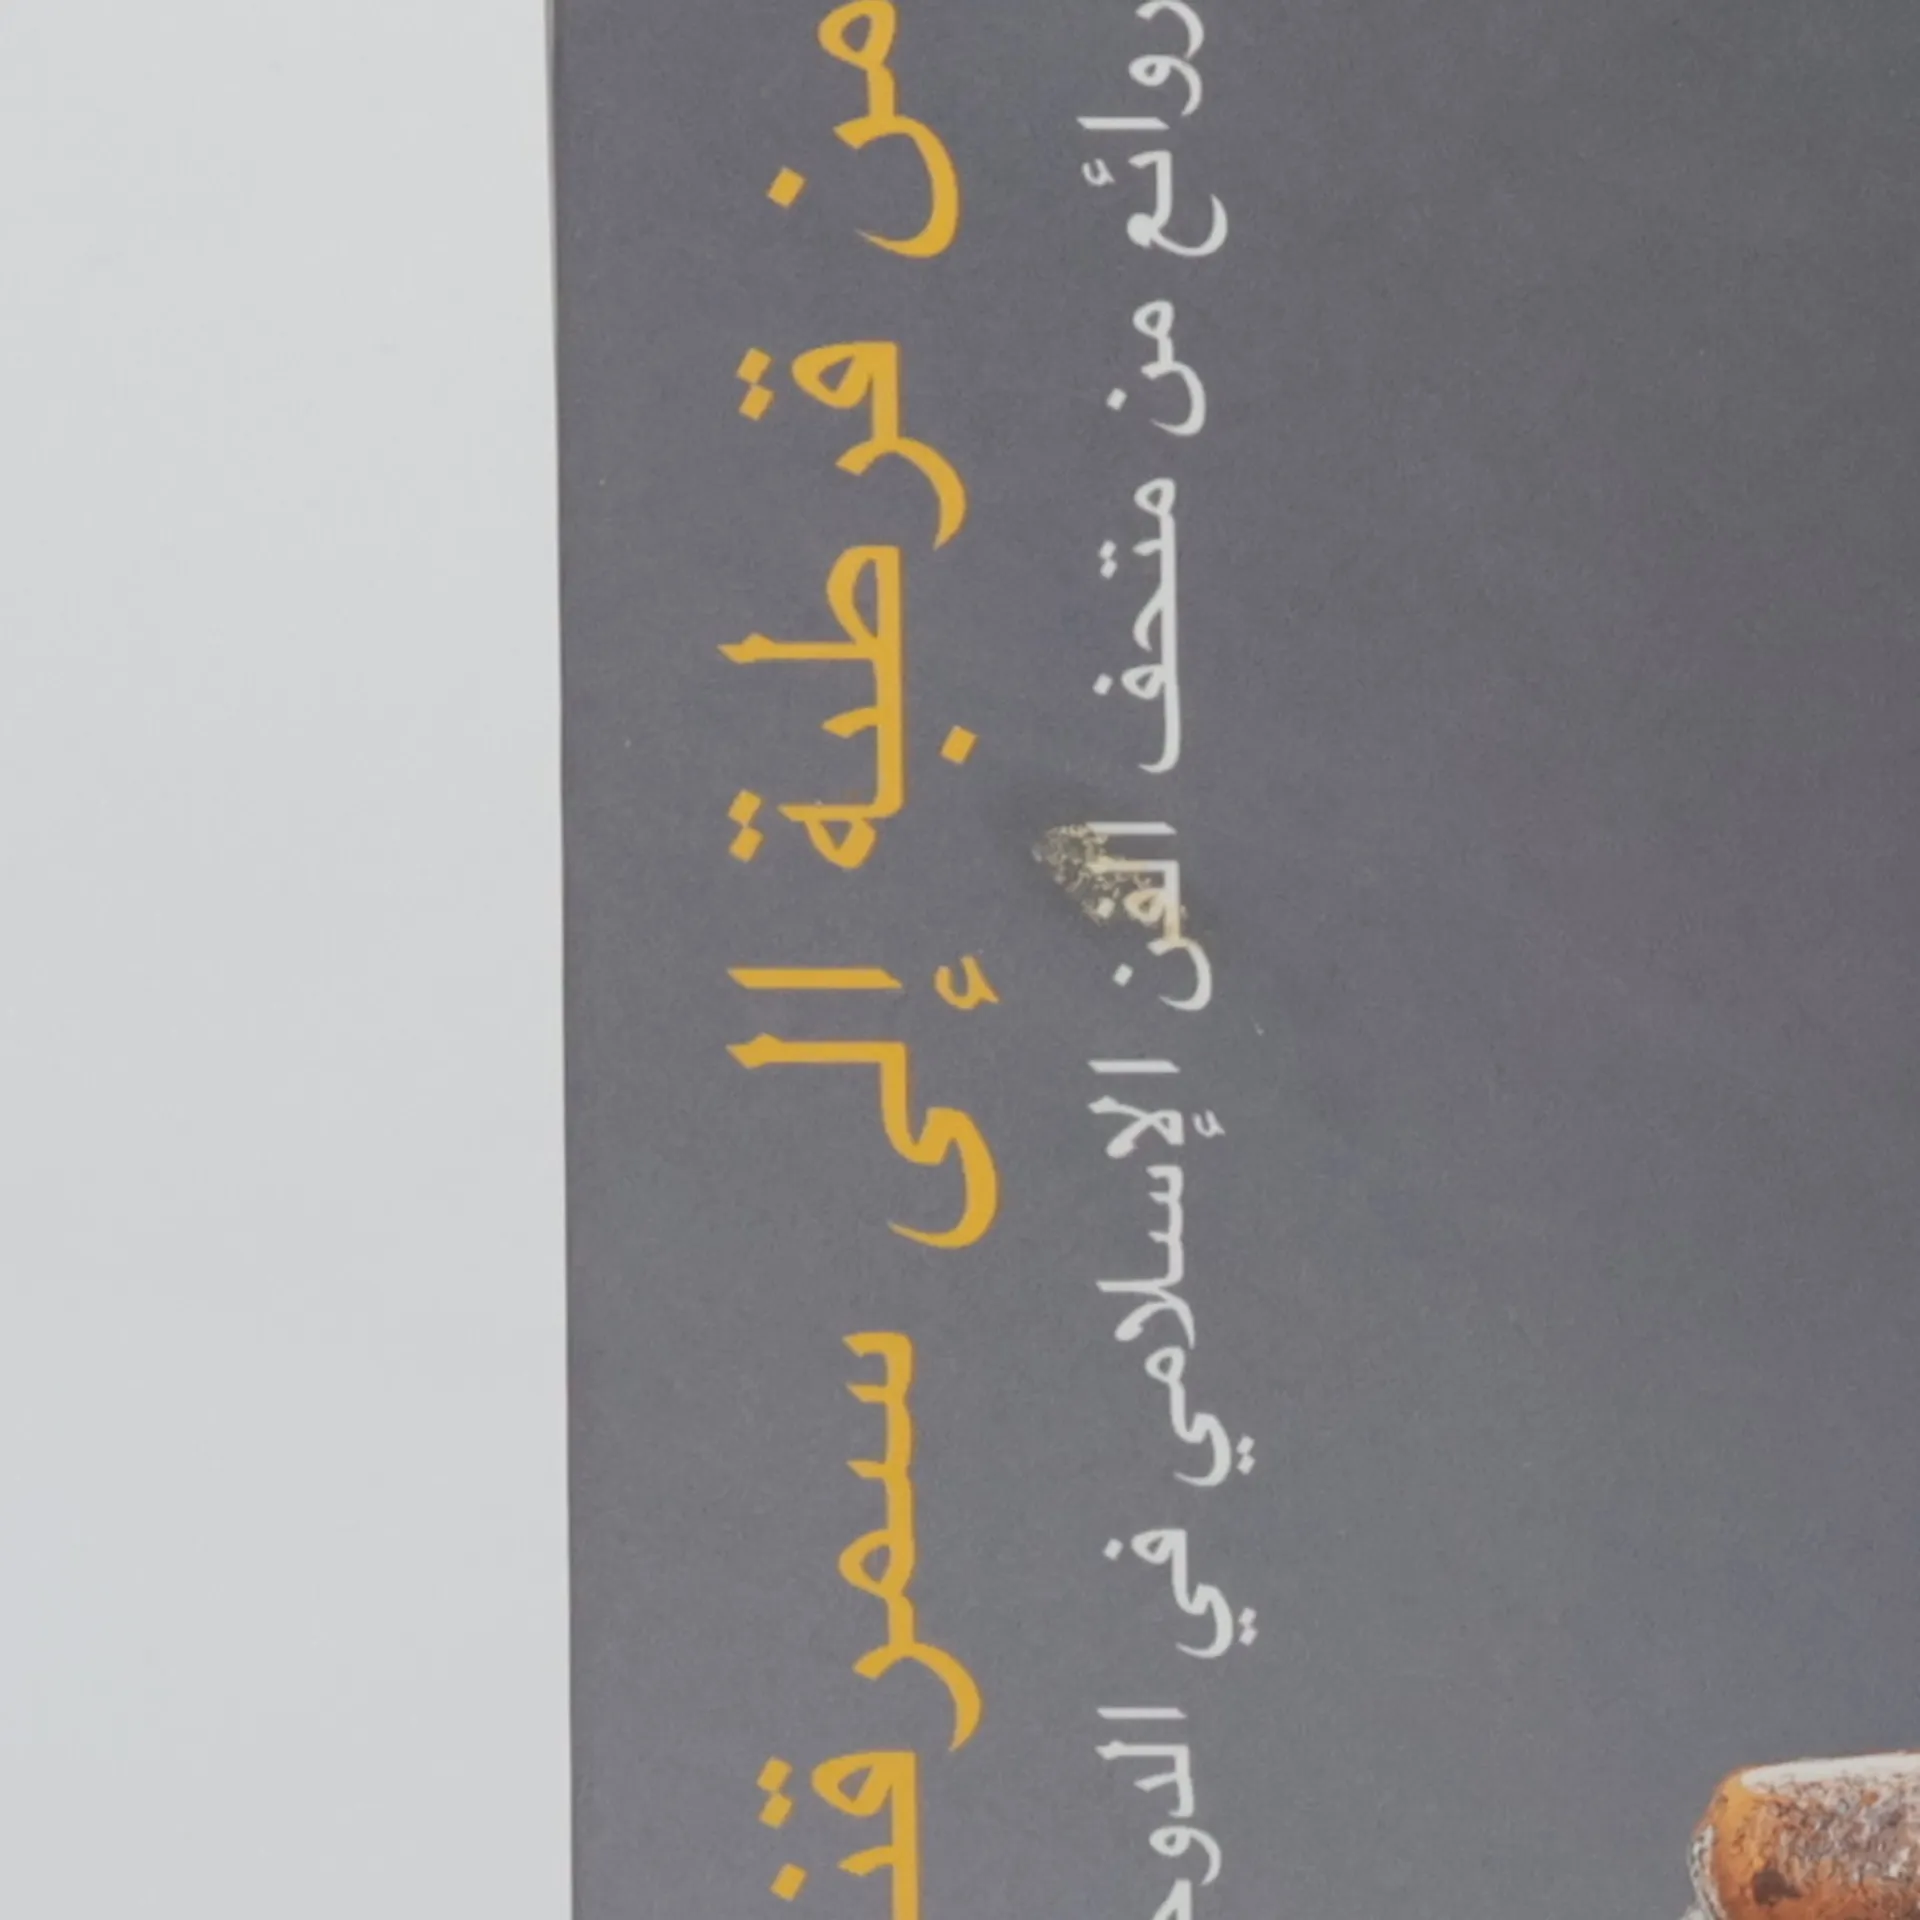 من قرطبة إلى سمرقن
روائع من متحف الفن الإسلامي في الدوح